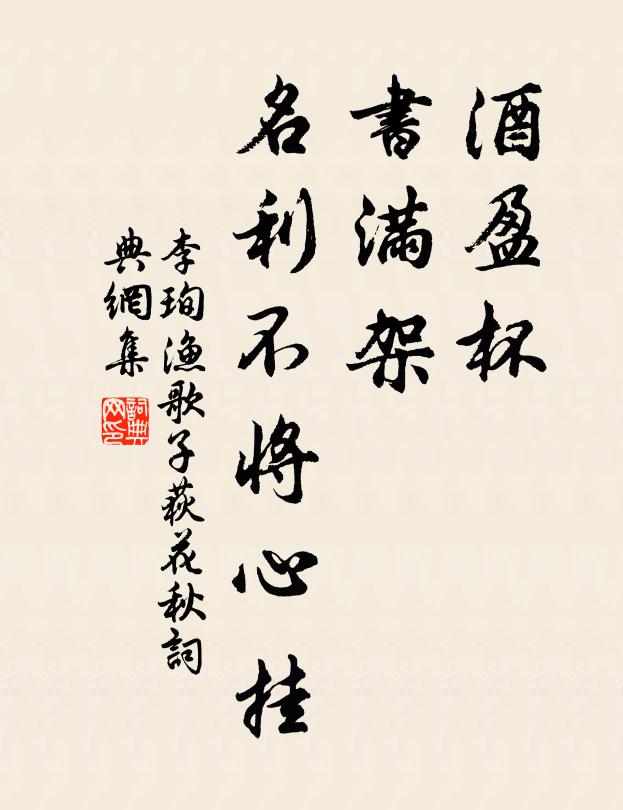 酒盈杯
書滿架
名利不將心挂
李珣漁歌子荻花秋詞
典網集
詞典
网印